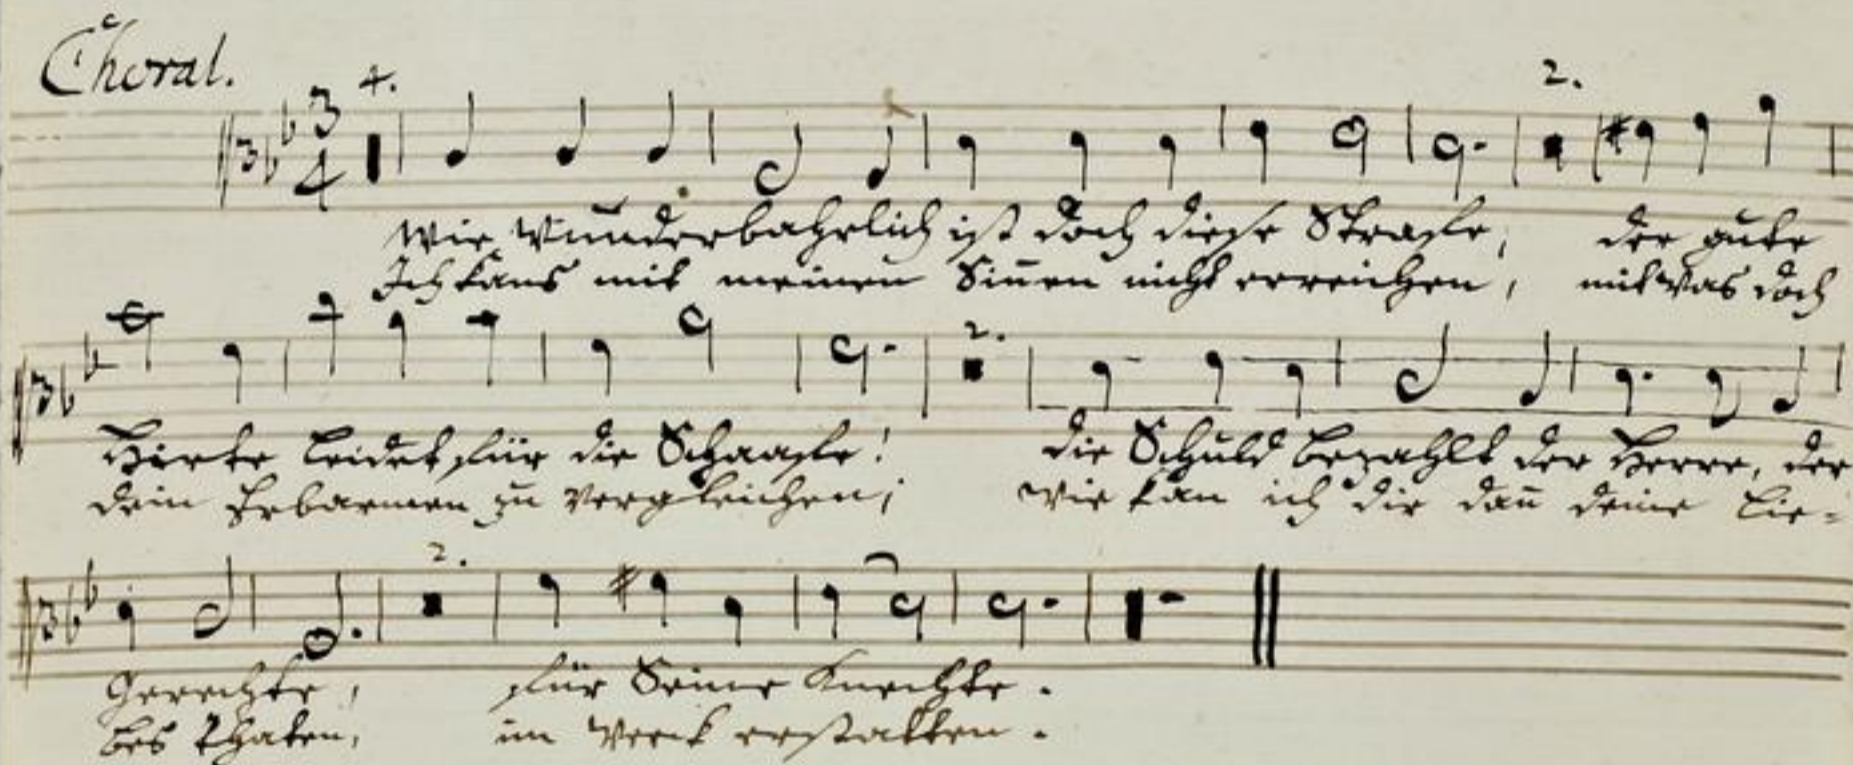 Choral.
4.
2.
3
4
Wie wunderbahrlich ist doch diese Strafe, der gute
Ich kans mit meinen Sinnen nicht erreichen, mit was doch
2.
Hirte leidet für die Schaafe! die Schuld bezahlt der Herre, der
dein Erbarmen zu vergleichen; wie kan ich dir dan̄ deine Lie=
2.
Gerechte, für Seine Knechte.
bes Thaten, im Werck erstatten.